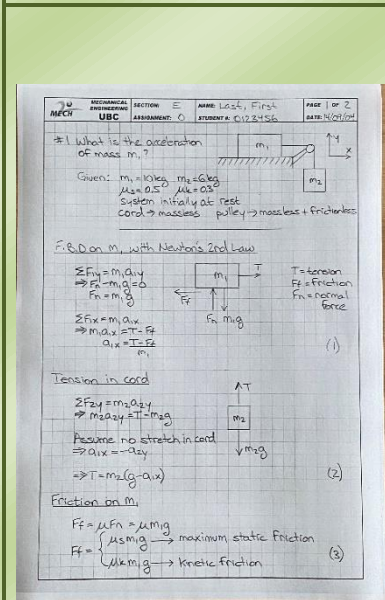 MECH 2
MECHANICAL ENGINEERING
UBC
SECTION: E
ASSIGNMENT: 0
NAME: Last, First
STUDENT #: 0123456
PAGE 1 OF 2
DATE: 14/09/04
#1 What is the acceleration
of mass m₁?
m₁
m₂
y
x
Given: m₁=10kg m₂=6kg
μs=0.5 μk=0.3
System initially at rest
cord → massless pulley → massless + frictionless
F.B.D on m₁ with Newton's 2nd Law
ΣF₁y=m₁a₁y
⇒ Fn-m₁g=0
Fn=m₁g
m₁
T
Ff
Fn m₁g
T=tension
Ff=friction
Fn=normal
force
ΣF₁x=m₁a₁x
⇒ m₁a₁x=T-Ff
a₁x=T-Ff
m₁
(1)
Tension in cord
ΣF₂y=m₂a₂y
⇒ m₂a₂y=T-m₂g
T
m₂
m₂g
Assume no stretch in cord
⇒ a₁x=-a₂y
⇒ T=m₂(g-a₁x)
(2)
Friction on m₁
Ff=μFn=μm₁g
Ff={ μsm₁g → maximum static friction
μkm₁g → kinetic friction
(3)